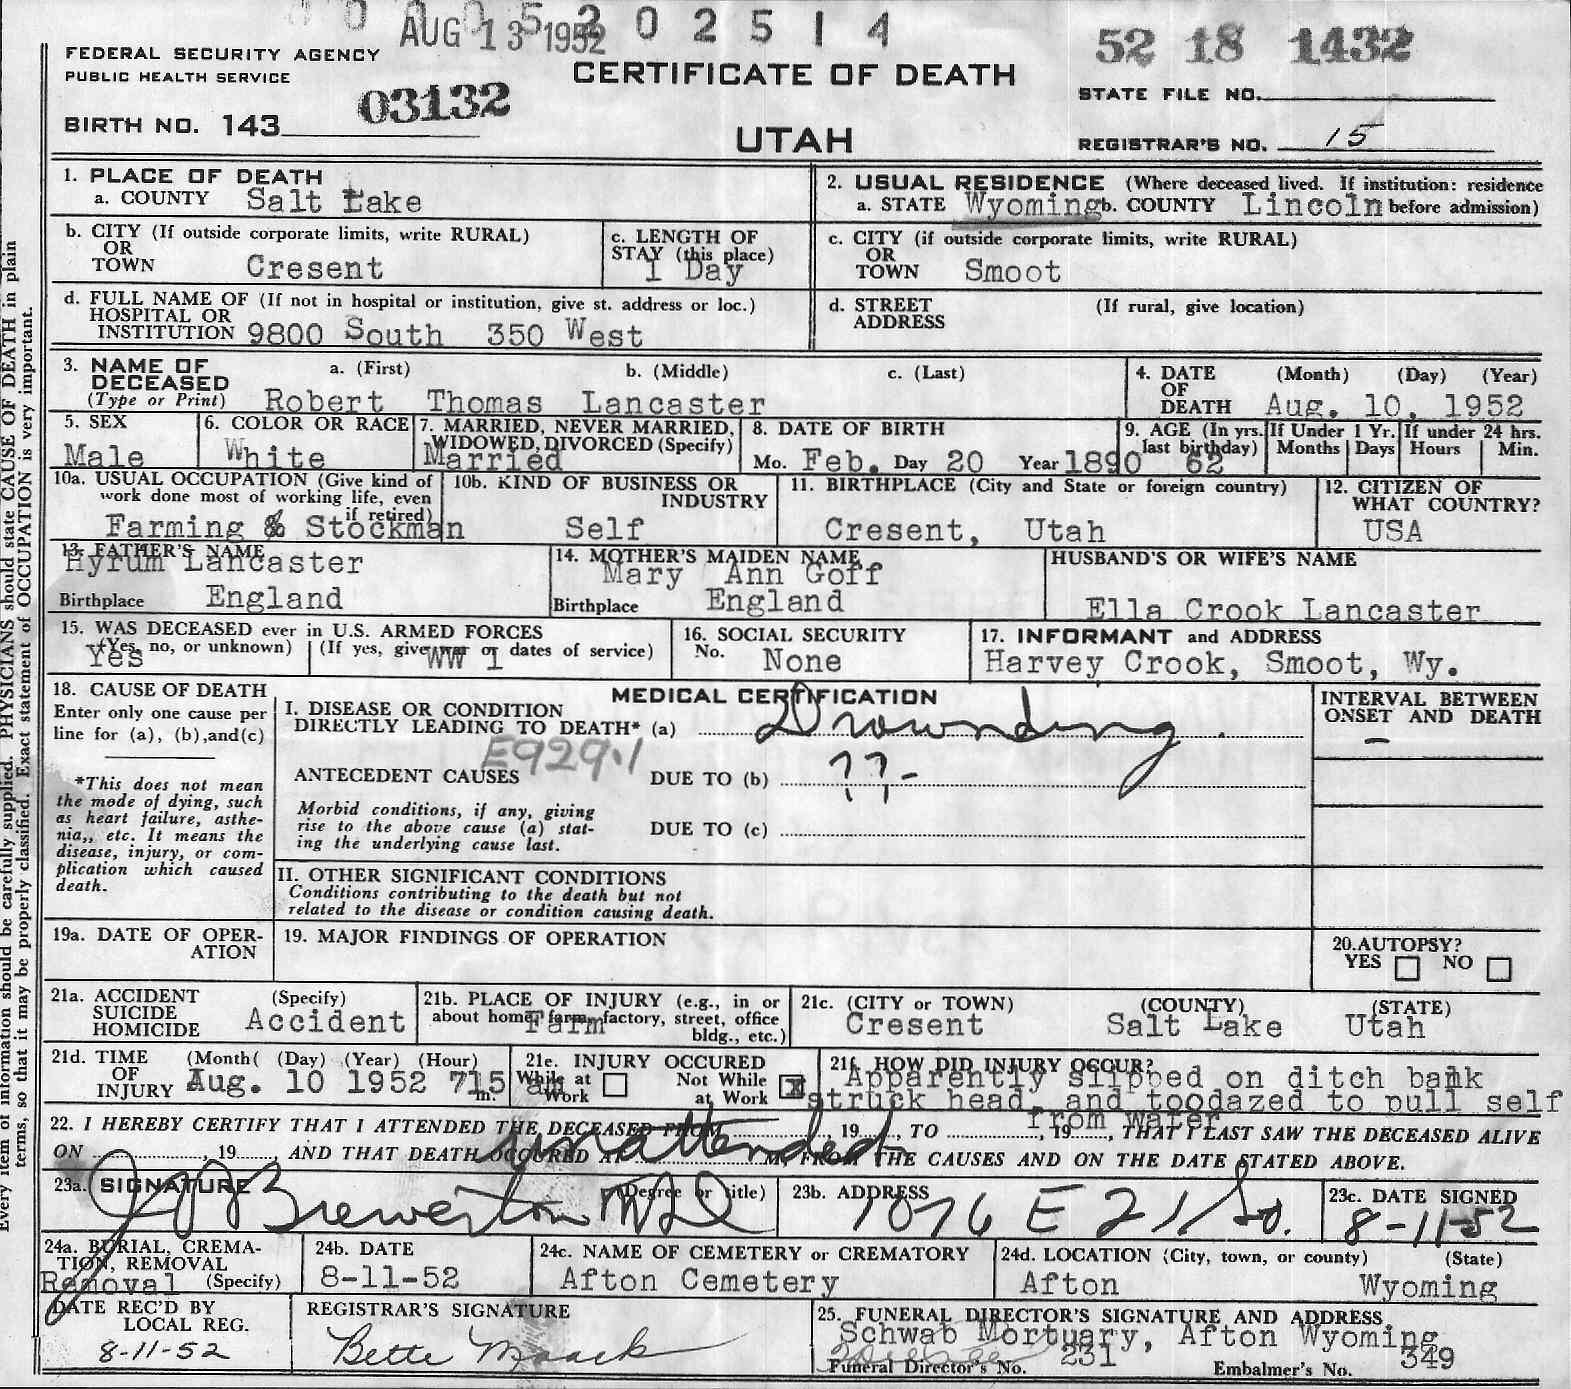 AUG 13 1952
0 2 5 1 4
52 18 1432
FEDERAL SECURITY AGENCY
PUBLIC HEALTH SERVICE
CERTIFICATE OF DEATH
STATE FILE NO.
03132
BIRTH NO. 143
UTAH
REGISTRAR'S NO. 15
1. PLACE OF DEATH
a. COUNTY Salt Lake
2. USUAL RESIDENCE (Where deceased lived. If institution: residence
a. STATE Wyoming b. COUNTY Lincoln before admission)
b. CITY (If outside corporate limits, write RURAL)
OR
TOWN Cresent
c. LENGTH OF
STAY (this place)
1 Day
c. CITY (if outside corporate limits, write RURAL)
OR
TOWN Smoot
d. FULL NAME OF (If not in hospital or institution, give st. address or loc.)
HOSPITAL OR
INSTITUTION 9800 South 350 West
d. STREET (If rural, give location)
ADDRESS
3. NAME OF a. (First) b. (Middle) c. (Last)
DECEASED
(Type or Print) Robert Thomas Lancaster
4. DATE (Month) (Day) (Year)
OF
DEATH Aug. 10, 1952
5. SEX
Male
6. COLOR OR RACE
White
7. MARRIED, NEVER MARRIED,
WIDOWED, DIVORCED (Specify)
Married
8. DATE OF BIRTH
Mo. Feb. Day 20 Year 1890
9. AGE (In yrs. last birthday)
62
If Under 1 Yr.
Months Days
If under 24 hrs.
Hours Min.
10a. USUAL OCCUPATION (Give kind of
work done most of working life, even
if retired)
Farming & Stockman
10b. KIND OF BUSINESS OR
INDUSTRY
Self
11. BIRTHPLACE (City and State or foreign country)
Cresent, Utah
12. CITIZEN OF
WHAT COUNTRY?
USA
13. FATHER'S NAME
Hyrum Lancaster
Birthplace England
14. MOTHER'S MAIDEN NAME
Mary Ann Goff
Birthplace England
HUSBAND'S OR WIFE'S NAME
Ella Crook Lancaster
15. WAS DECEASED ever in U.S. ARMED FORCES
(Yes, no, or unknown) (If yes, give war or dates of service)
Yes WW 1
16. SOCIAL SECURITY
No. None
17. INFORMANT and ADDRESS
Harvey Crook, Smoot, Wy.
18. CAUSE OF DEATH
Enter only one cause per
line for (a), (b),and(c)
*This does not mean
the mode of dying, such
as heart failure, asthe-
nia,, etc. It means the
disease, injury, or com-
plication which caused
death.
MEDICAL CERTIFICATION
I. DISEASE OR CONDITION
DIRECTLY LEADING TO DEATH* (a) Drownding
E929.1
ANTECEDENT CAUSES DUE TO (b) ??-
Morbid conditions, if any, giving
rise to the above cause (a) stat-
ing the underlying cause last.
DUE TO (c)
II. OTHER SIGNIFICANT CONDITIONS
Conditions contributing to the death but not
related to the disease or condition causing death.
INTERVAL BETWEEN
ONSET AND DEATH
–
19a. DATE OF OPER-
ATION
19. MAJOR FINDINGS OF OPERATION
20.AUTOPSY?
YES NO
21a. ACCIDENT (Specify)
SUICIDE
HOMICIDE Accident
21b. PLACE OF INJURY (e.g., in or
about home, farm, factory, street, office
bldg., etc.)
Farm
21c. (CITY or TOWN) (COUNTY) (STATE)
Cresent Salt Lake Utah
21d. TIME (Month( (Day) (Year) (Hour)
OF
INJURY Aug. 10 1952 715 am m.
21e. INJURY OCCURED
While at Work
Not While at Work X
21f. HOW DID INJURY OCCUR?
Apparently slipped on ditch bank
struck head, and toodazed to pull self
from water
22. I HEREBY CERTIFY THAT I ATTENDED THE DECEASED FROM , 19 , TO , 19 , THAT I LAST SAW THE DECEASED ALIVE
unattended
ON , 19 , AND THAT DEATH OCCURED AT M, FROM THE CAUSES AND ON THE DATE STATED ABOVE.
23a. SIGNATURE (Degree or title)
Brewerton MD
23b. ADDRESS
1076 E 21 So.
23c. DATE SIGNED
8-11-52
24a. BURIAL, CREMA-
TION, REMOVAL
Removal (Specify)
24b. DATE
8-11-52
24c. NAME OF CEMETERY or CREMATORY
Afton Cemetery
24d. LOCATION (City, town, or county) (State)
Afton Wyoming
DATE REC'D BY
LOCAL REG.
8-11-52
REGISTRAR'S SIGNATURE
Bette Maack
25. FUNERAL DIRECTOR'S SIGNATURE AND ADDRESS
Schwab Mortuary, Afton Wyoming
Funeral Director's No. 231 Embalmer's No. 349
Every item of information should be carefully supplied. PHYSICIANS should state CAUSE OF DEATH in plain
terms, so that it may be properly classified. Exact statement of OCCUPATION is very important.